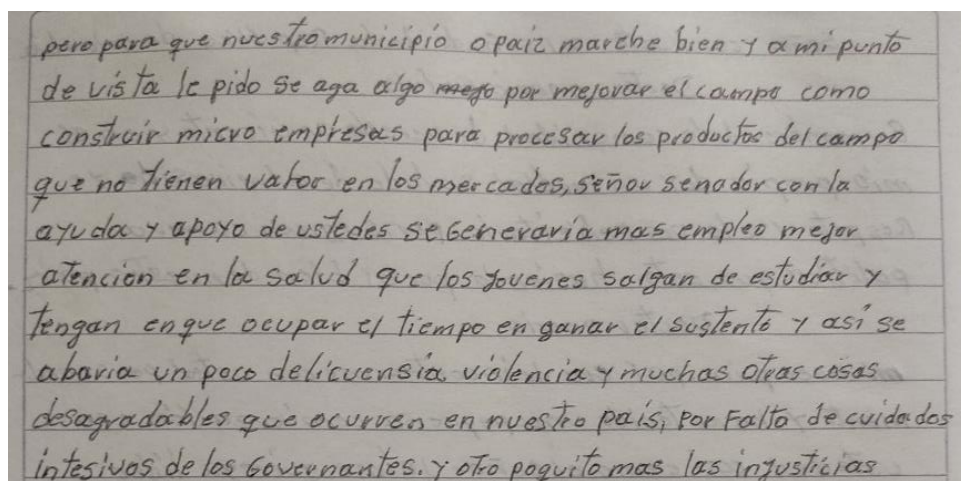 pero para que nuestro municipio o paiz marche bien y a mi punto
de vista le pido se aga algo por mejorar el campo como
construir micro empresas para procesar los productos del campo
que no tienen valor en los mercados, señor senador con la
ayuda y apoyo de ustedes se generaria mas empleo mejor
atencion en la salud que los jovenes salgan de estudiar y
tengan en que ocupar el tiempo en ganar el sustento y así se
abaria un poco delicuensia, violencia y muchas otras cosas
desagradables que ocurren en nuestro país, por falta de cuidados
intesivos de los governantes. y otro poquito mas las injusticias